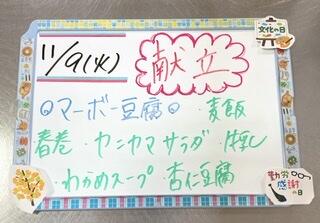 文化の日
11/9(水) 献立
◎マーボー豆腐◎ ・麦飯
春巻 ・カニカマサラダ ・
・わかめスープ ・杏仁豆腐
勤労
感謝
の日